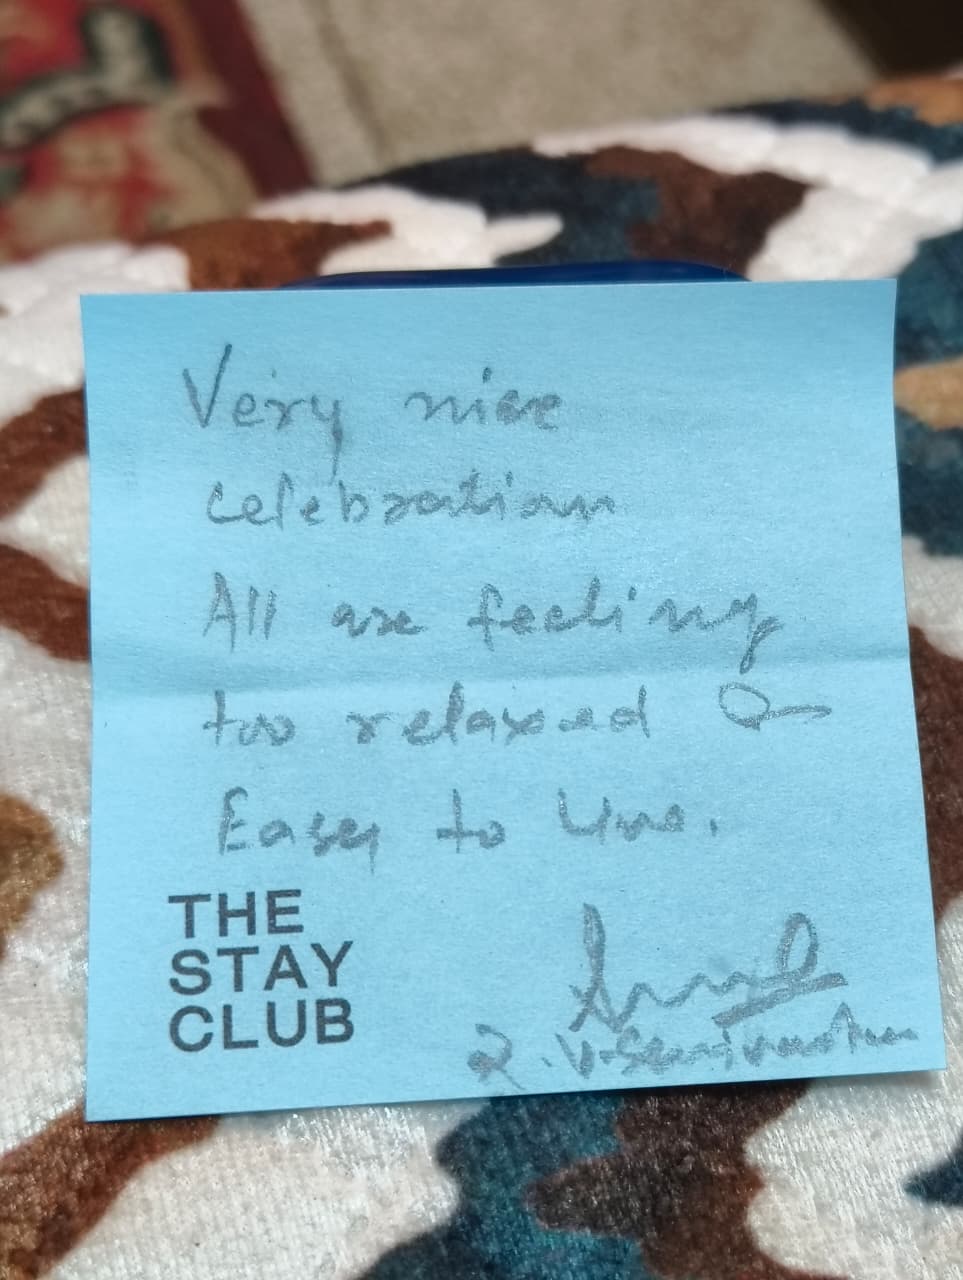 Very nice
celebration
All are feeling
too relaxed &
Easy to live.
THE
STAY
CLUB